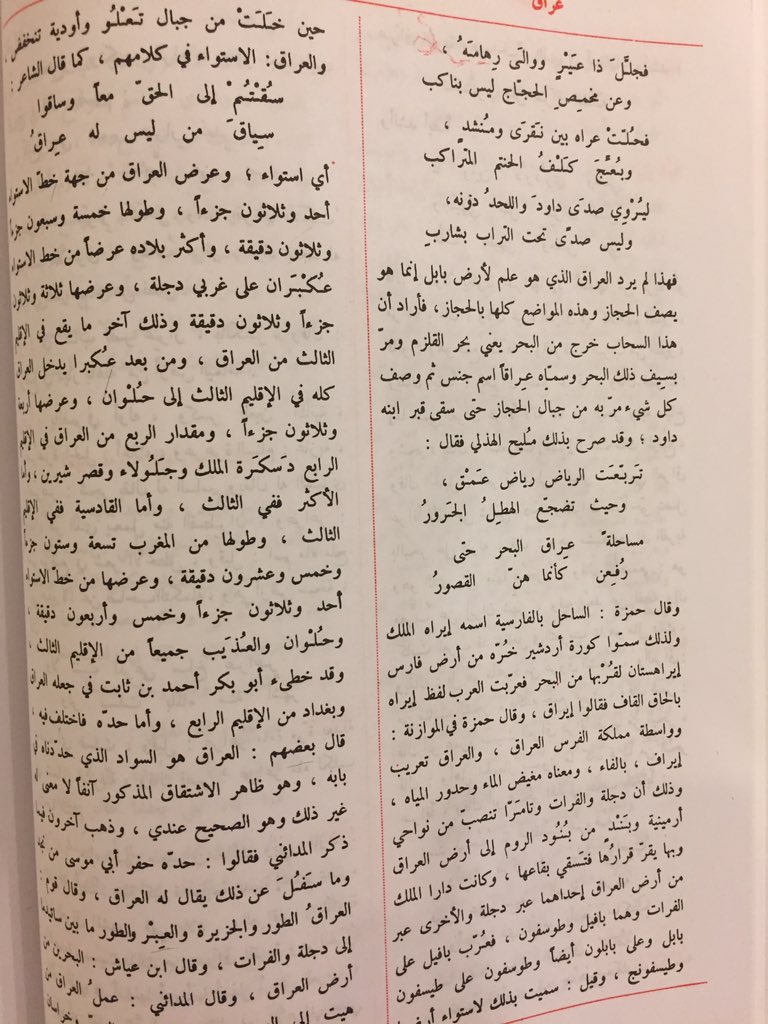 عراق
فجلَّلَ ذا عَيْرٍ ووالَى رِهامَهُ ،
وعن مخمِصِ الحجّاج ليس بناكب
فحُلّتْ عراه بين نَقرَى ومُنشدٍ ،
وبُعَّجَ كَلْفُ الحنتم المتراكب
ليُرْوِي صدَى داودَ واللحدُ دونه،
وليس صدًى تحت التراب بشاربِ
فهذا لم يرد العراق الذي هو علم لأرض بابل إنما هو
يصف الحجاز وهذه المواضع كلها بالحجاز ، فأراد أن
هذا السحاب خرج من البحر يعني بحر القلزم ومرّ
بسِيف ذلك البحر وسمّاه عراقاً اسم جنس ثم وصف
كل شيء مرّ به من جبال الحجاز حتى سقى قبر ابنه
داود ؛ وقد صرح بذلك مُليح الهذلي فقال :
تَربّعَت الرياض رياض عَمْقٍ ،
وحيث تضجّع الهطِلُ الجَرورُ
مساحلةً عِراق البحر حتى
رُفِعن كأنما هنّ القصورُ
وقال حمزة : الساحل بالفارسية اسمه إيراه الملك
ولذلك سمّوا كورة أردشير خُرّه من أرض فارس
إيراهستان لقُرْبها من البحر فعرّبت العرب لفظ إيراه
بالحاق القاف فقالوا إيراق ، وقال حمزة في الموازنة :
وواسطة مملكة الفرس العراق ، والعراق تعريب
إيراف ، بالفاء ، ومعناه مغيض الماء وحدور المياه ،
وذلك أن دجلة والفرات وتامَرّا تنصبّ من نواحي
أرمينية وبَنْد من بُنُود الروم إلى أرض العراق
وبها يقرّ قرارُها فتَسقي بقاعها ، وكانت دارا الملك
من أرض العراق إحداهما عبر دجلة والأخرى عبر
الفرات وهما بافيل وطوسفون ، فعُرّب بافيل على
بابل وعلى بابلون أيضاً وطوسفون على طيسفون
وطيسفونج ، وقيل : سميت بذلك لاستواء
حين خلَتْ من جبال تَعْلُو وأودية تنخفض ،
والعراق: الاستواء في كلامهم ، كما قال الشاعر :
سُقْتُمْ إلى الحقّ معاً وساقوا
سِياقَ من ليس له عِراقُ
أي استواء ؛ وعرض العراق من جهة خطّ الاستواء
أحد وثلاثون جزءاً ، وطولها خمسة وسبعون جزءاً
وثلاثون دقيقة ، وأكثر بلاده عرضاً من خط الاستواء
عُكْبَران على غربي دجلة ، وعرضها ثلاثة وثلاثون
جزءاً وثلاثون دقيقة وذلك آخر ما يقع في الإقليم
الثالث من العراق ، ومن بعد عُكبرا يدخل العراق
كله في الإقليم الثالث إلى حُلْوان ، وعرضها أربعة
وثلاثون جزءاً ، ومقدار الربع من العراق في الإقليم
الرابع دَسكَرة الملك وجَلُولاء وقصر شيرين ، وأما
الأكثر ففي الثالث ، وأما القادسية ففي الإقليم
الثالث ، وطولها من المغرب تسعة وستون جزءاً
وخمس وعشرون دقيقة ، وعرضها من خطّ الاستواء
أحد وثلاثون جزءاً وخمس وأربعون دقيقة ،
وحُلْوان والعُذَيب جميعاً من الإقليم الثالث ،
وقد خطىء أبو بكر أحمد بن ثابت في جعله العراق
وبغداد من الإقليم الرابع ، وأما حدّه فاختلف فيه ،
قال بعضهم : العراق هو السواد الذي حدّدناه في
بابه ، وهو ظاهر الاشتقاق المذكور آنفاً لا معنى له
غير ذلك وهو الصحيح عندي ، وذهب آخرون فيما
ذكر المدائني فقالوا : حدّه حفر أبي موسى من نجد
وما سَفُلَ عن ذلك يقال له العراق ، وقال قوم :
العراقُ الطور والجزيرة والعِبْر والطور ما بين ساتيدما
إلى دجلة والفرات ، وقال ابن عياش : البحرين من
أرض العراق ، وقال المدائني : عملُ العراق من
هيت إلى